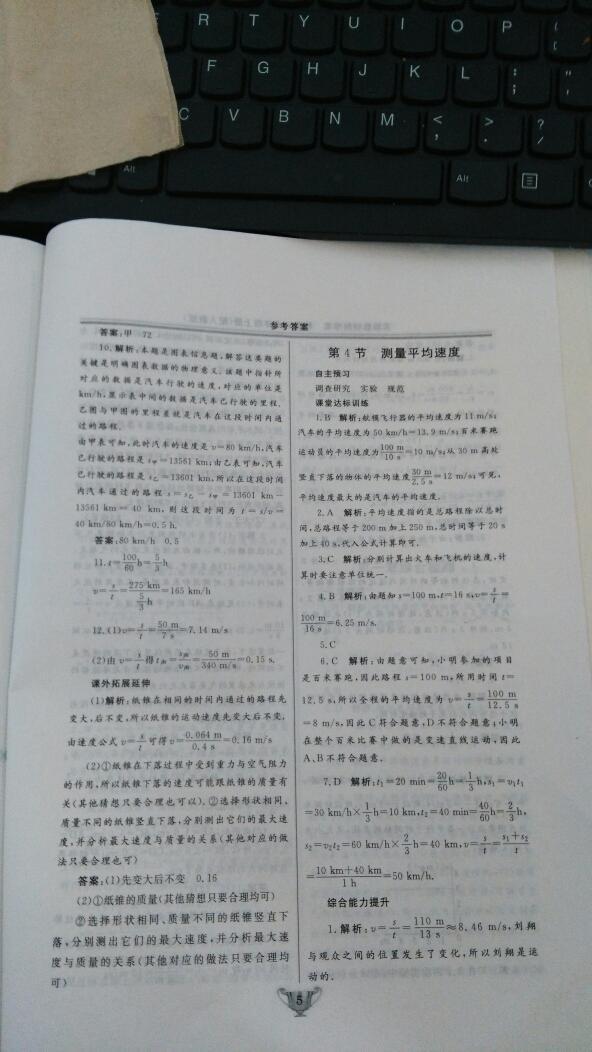 E R T Y U I O P
F G H J K L
C V B N M
Alt
Alt
参考答案
答案:甲 72
10.解析:本题是图表信息题,解答这类题的
关键是明确图表数据的物理意义.该题中指针所
对应的数据是汽车行驶的速度,对应的单位是
km/h,显示表中间的数据是汽车已行驶的里程.
乙图与甲图的里程差就是汽车在这段时间内通
过的路程.
由甲表可知,此时汽车的速度是 v=80 km/h,汽车
已行驶的路程是 s甲=13561 km;由乙表可知,汽车
已行驶的路程是 s乙=13601 km,所以在这段时间
内汽车通过的路程 s=s乙-s甲=13601 km-
13561 km=40 km,则这段时间为 t=s/v=
40 km/80 km/h=0.5 h.
答案:80 km/h 0.5
11.t=100/60 h=5/3 h
v=s/t=275 km/(5/3 h)=165 km/h
12.(1)v=s/t=50 m/7 s=7.14 m/s
(2)由 v=s/t 得t声=s声/v声=50 m/340 m/s=0.15 s.
课外拓展延伸
(1)解析:纸锥在相同的时间内通过的路程先
变大,后不变,所以纸锥的运动速度先变大后不变,
由速度公式 v=s/t 可得v=0.064 m/0.4 s=0.16 m/s
(2)①纸锥在下落过程中受到重力与空气阻力
的作用,所以纸锥下落的速度可能跟纸锥的质量有
关(其他猜想只要合理也可以).②选择形状相同、
质量不同的纸锥竖直下落,分别测出它们的最大速
度,并分析最大速度与质量的关系(其他对应的做
法只要合理也可)
答案:(1)先变大后不变 0.16
(2)①纸锥的质量(其他猜想只要合理均可)
②选择形状相同、质量不同的纸锥竖直下
落,分别测出它们的最大速度,并分析最大速
度与质量的关系(其他对应的做法只要合理均
可)
第4节 测量平均速度
自主预习
调查研究 实验 规范
课堂达标训练
1.B 解析:航模飞行器的平均速度为 11 m/s;
汽车的平均速度为 50 km/h=13.9 m/s;百米赛跑
运动员的平均速度为100 m/10 s=10 m/s;从 30 m 高处
竖直下落的物体的平均速度30 m/2.5 s=12 m/s;可见,
平均速度最大的是汽车的平均速度.
2.A 解析:平均速度指的是总路程除以总时
间,总路程等于 200 m 加上 250 m,总时间等于 20 s
加上 40 s.代入公式计算即可.
3.C 解析:分别计算出火车和飞机的速度,计
算时要注意单位统一.
4.B 解析:由题知 s=100 m,t=16 s,v=s/t=
100 m/16 s=6.25 m/s.
5.C
6.C 解析:由题意可知,小明参加的项目
是百米赛跑,因此路程 s=100 m,所用时间 t=
12.5 s,所以全程的平均速度为 v=s/t=100 m/12.5 s
=8 m/s,因此 C 符合题意,D 不符合题意;小明
在整个百米比赛中做的是变速直线运动,因此
A、B 不符合题意.
7.D 解析:t1=20 min=20/60 h=1/3 h,s1=v1t1
=30 km/h×1/3 h=10 km,t2=40 min=40/60 h=2/3 h,
s2=v2t2=60 km/h×2/3 h=40 km,v=s/t=(s1+s2)/t
=(10 km+40 km)/1 h=50 km/h.
综合能力提升
1.解析:v=s/t=110 m/13 s≈8.46 m/s,刘翔
与观众之间的位置发生了变化,所以刘翔是运
动的.
5